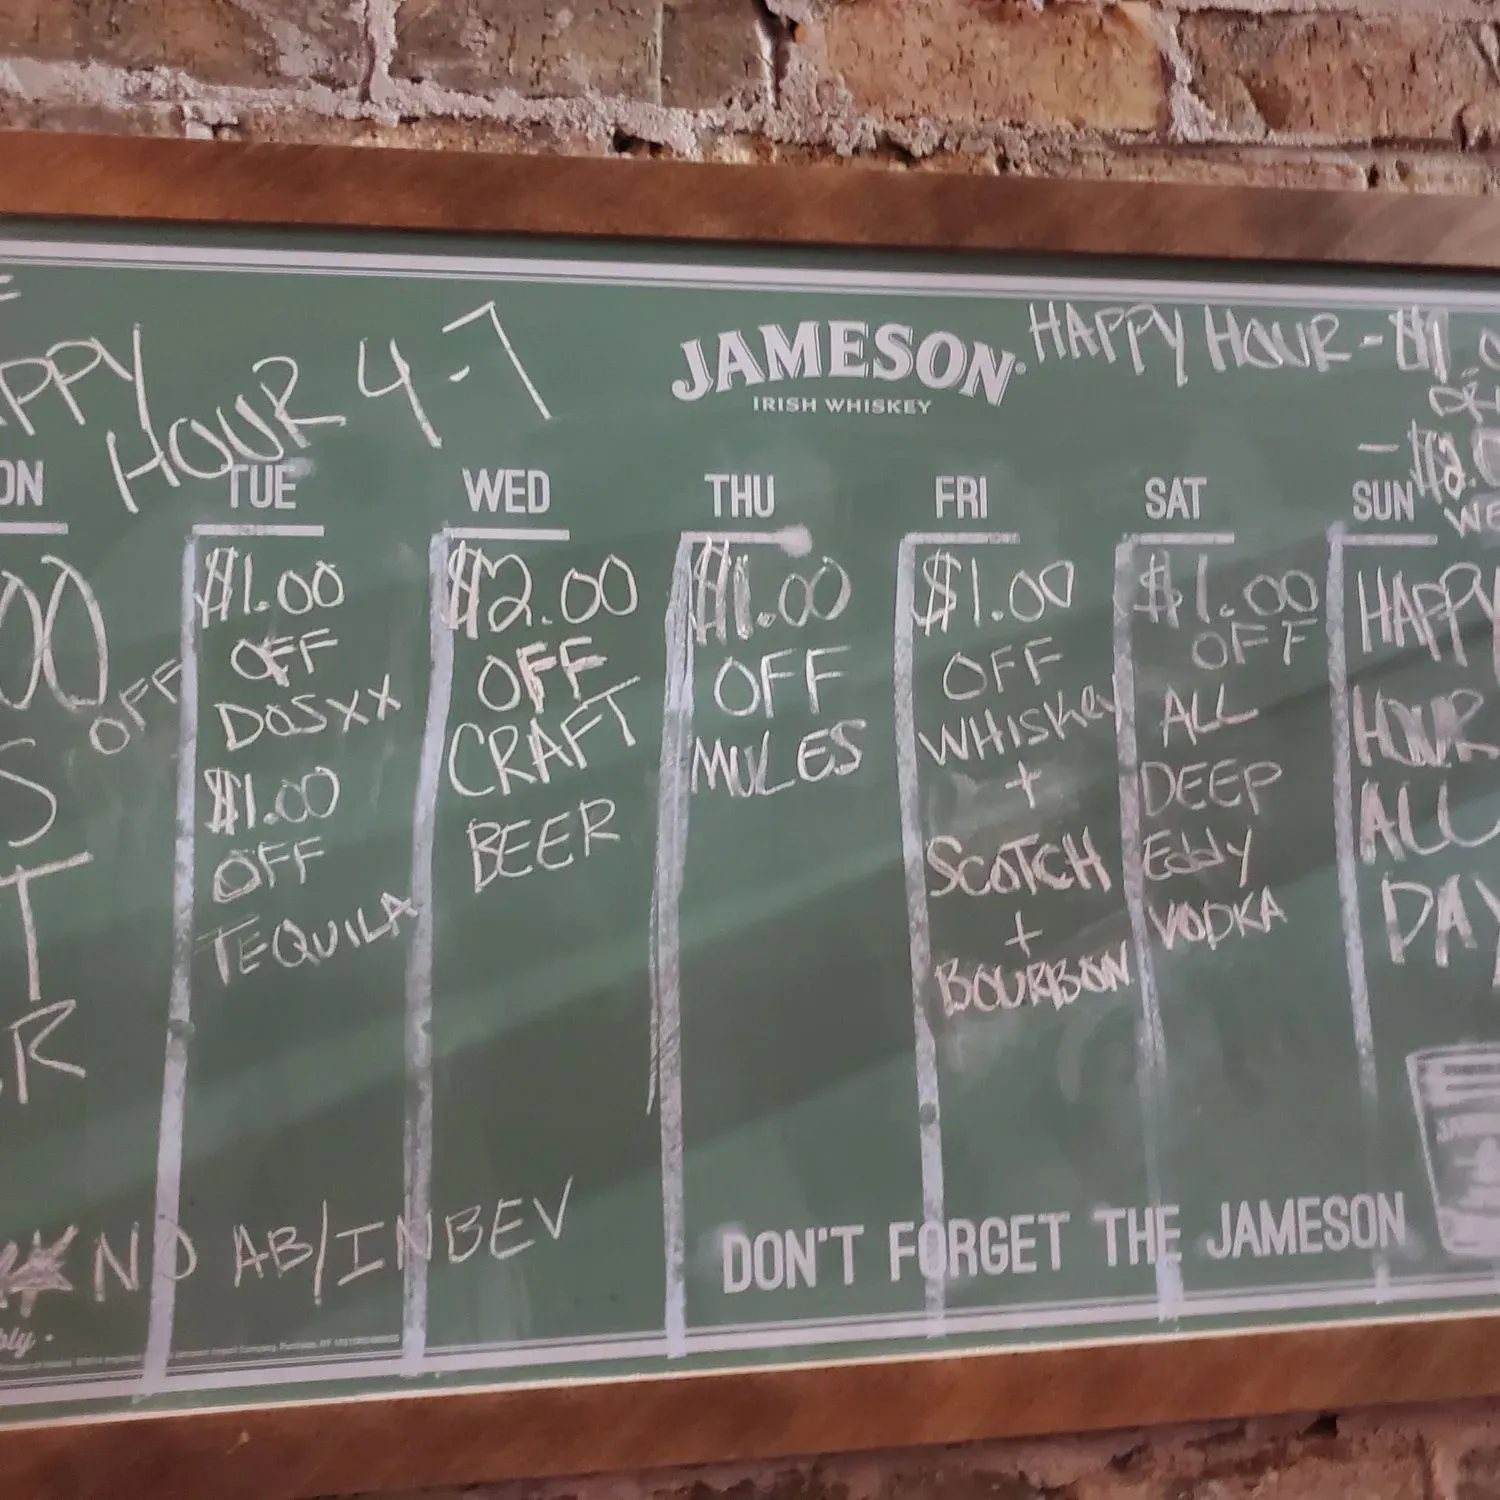 HAPPY
HOUR 4-7
JAMESON
IRISH WHISKEY
HAPPY HOUR - $1
- $2.0
ON
TUE
WED
THU
FRI
SAT
SUN
00
OFF
S
T
R
$1.00
OFF
DOSXX
$1.00
OFF
TEQUILA
$2.00
OFF
CRAFT
BEER
$1.00
OFF
MULES
$1.00
OFF
WHISKEY
+
SCOTCH
+
BOURBON
$1.00
OFF
ALL
DEEP
Eddy
VODKA
HAPPY
HOUR
ALL
DAY
NO AB/INBEV
DON'T FORGET THE JAMESON